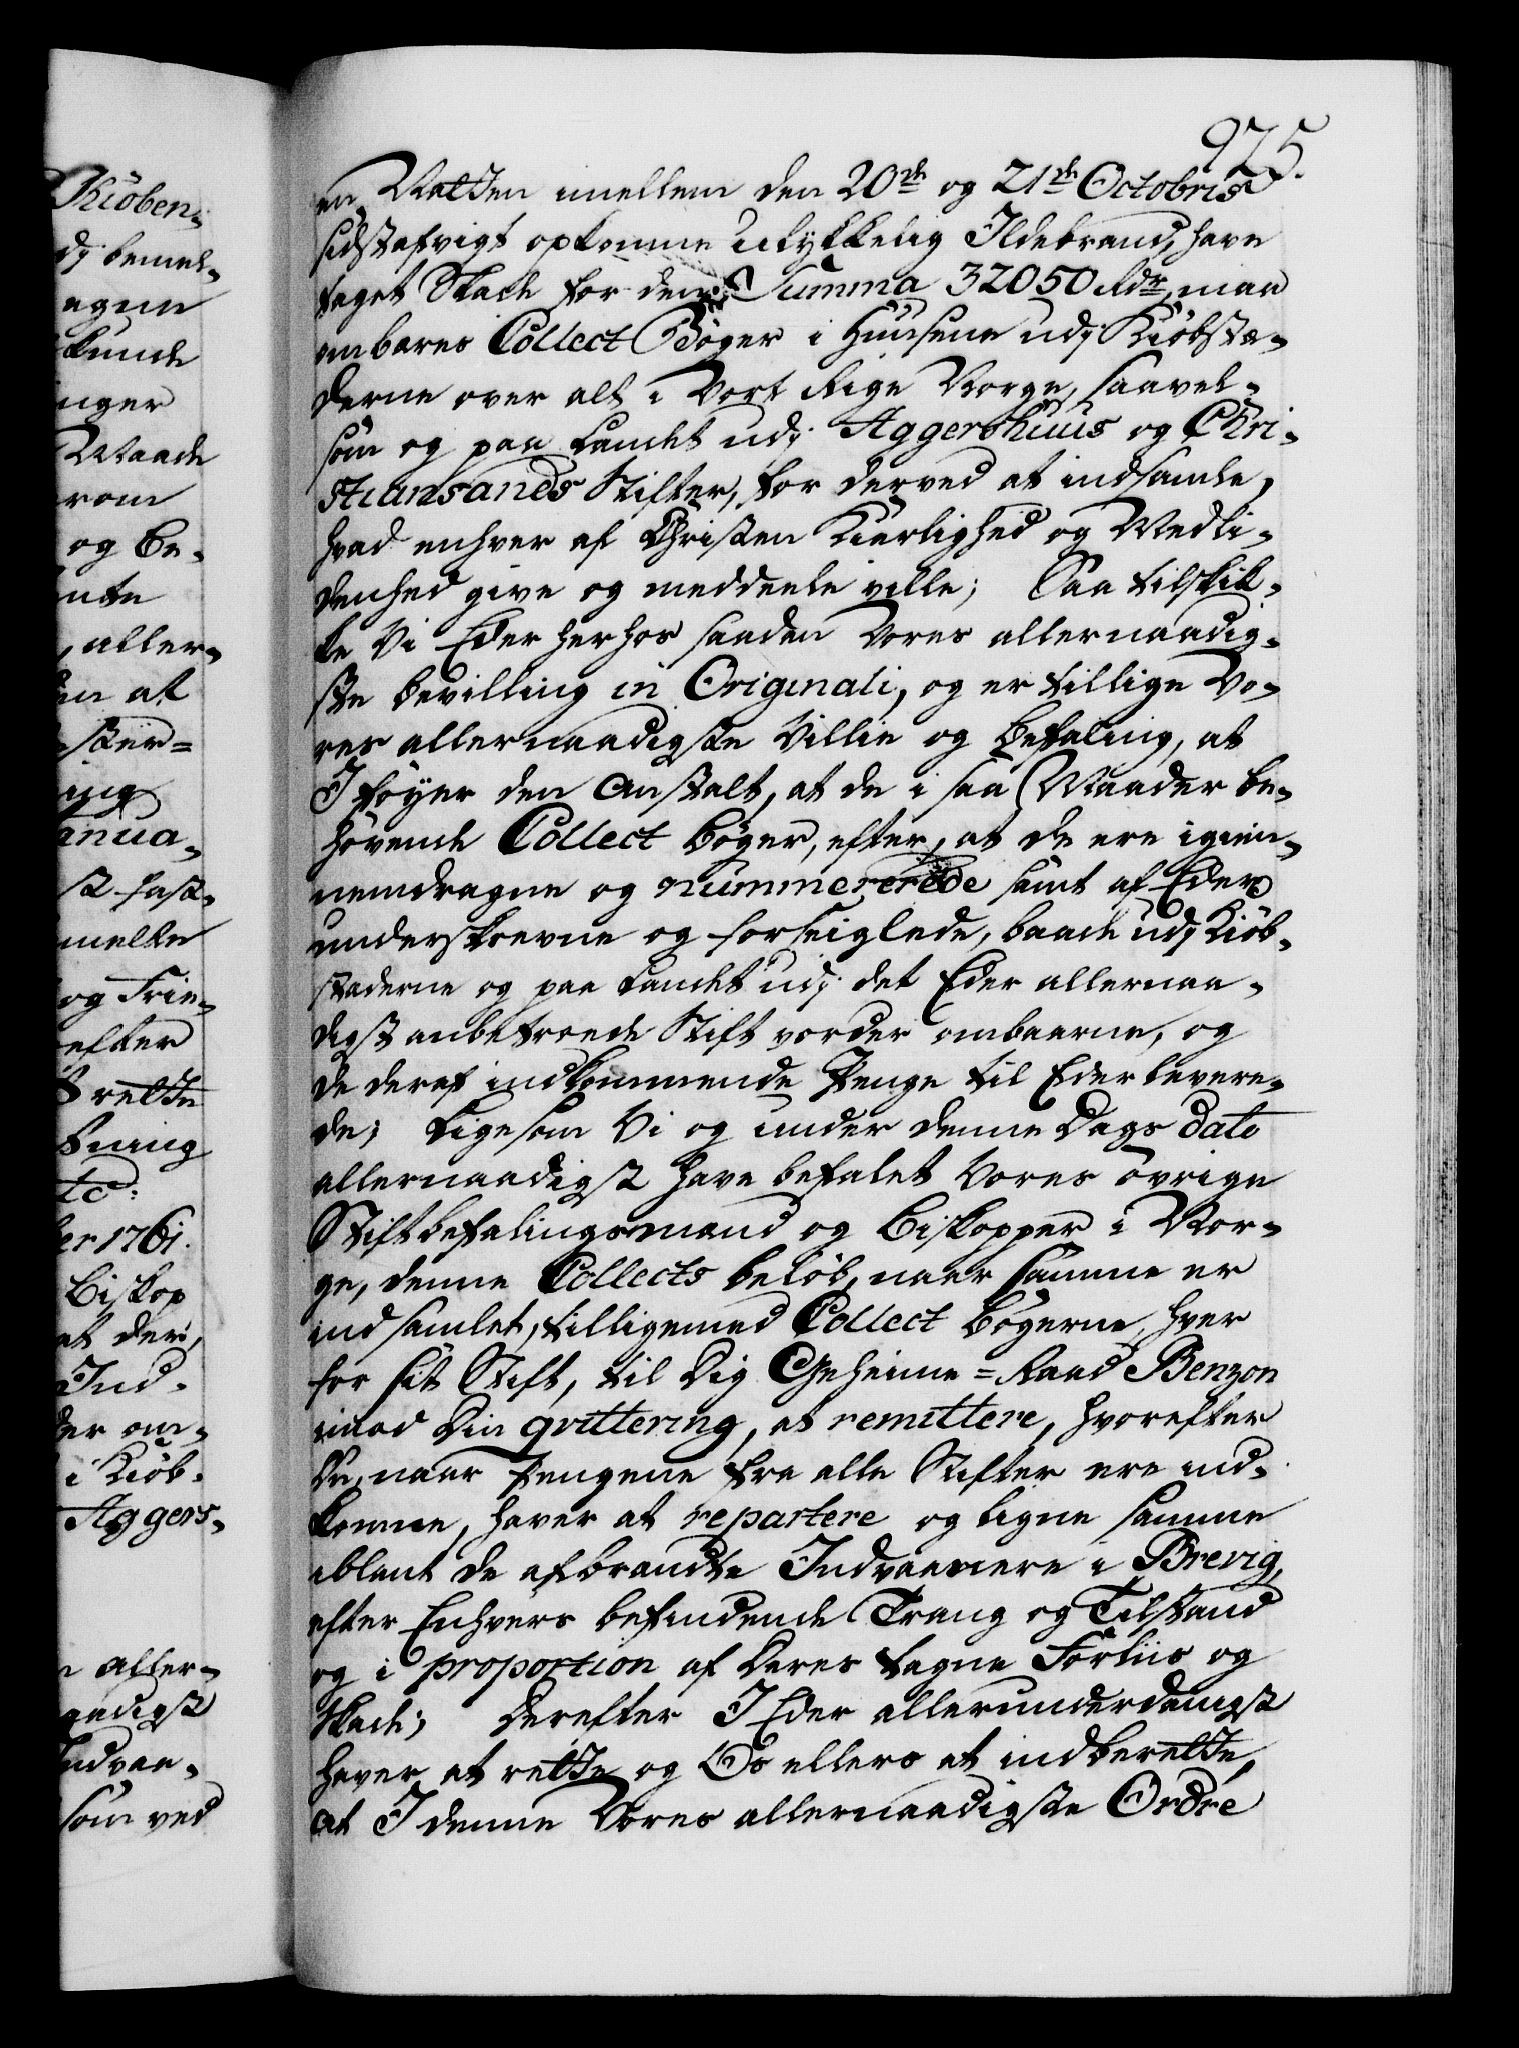 975.
en Natten imellem den 20de og 21de Octobris
sidstafvigt opkomne ulykkelig Ildebrand, have
taget Skade for den Summa 32050 Rdr, maa
ombæres Collect Bøger i Huusene udj Kiöbstæ-
derne over alt i Vort Rige Norge, saavel-
som og paa Landet udj Aggershuus og Chri-
stiansands Stifter, for derved at indsamle,
hvad enhver af Christen Kierlighed og Medli-
denhed give og meddeele ville; Saa tilskik-
ke Vi Eder herhos saadan Vores allernaadig-
ste Bevilling in Originali, og er tillige Vo-
res allernaadigste Villie og Befaling, at
I föyer den Anstalt, at de i saa Maader be-
hövende Collect Böger, efter, at de ere igien-
nemdragne og nummererede samt af Eder
underskrevne og forseiglede, baade udj Kiöb-
stæderne og paa Landet udj det Eder allernaa-
digst anbetroede Stift vorder ombaarne, og
de deraf indkommende Penge til Eder levere-
de; Ligesom Vi og under denne Dags dato
allernaadigst have befalet Vores övrige
Stiftbefalingsmænd og Biskopper i Nor-
ge, denne Collects Belöb, naar samme er
indsamlet, tilligemed Collect Bögerne, hver
for sit Stift, til Dig Geheime=Raad Benzon
imod Din qvittering, at remittere, hvorefter
Du, naar Pengene fra alle Stifter ere ind-
komne, haver at repartere og ligne samme
iblant de afbrændte Indvaanere i Brevig,
efter Enhvers befindende Trang og Tilstand
og i proportion af deres tagne Forliis og
Skade; Derefter I Eder allerunderdanigst
haver at rette og Os ellers at indberette,
at I denne Vores allernaadigste Ordre
Kiöben-
udj bemel-
kunde
Maade
og Be-
, aller-
at
ing
og Frie-
efter
rette
1761.
Biskop
at der,
Ind-
om-
i Kiöb-
Aggers-
aller-
som ved